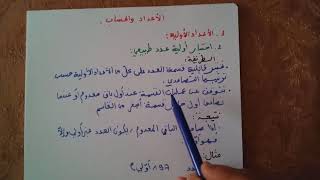 الأعداد والحساب.
1. الأعداد الأولية:
1. اختبار أولية عدد طبيعي
الطريقة:
نختبر قابلية قسمة العدد على كل من الأعداد الأولية حسب
ترتيبها التصاعدي.
نتوقف عن عمليات القسمة عند أول باق معدوم أو عندما
أول حاصل قسمة أصغر من القاسم
نتيجة:
إذا الباقي المعدوم، يكون العدد غير أولي وإلا
فهو
مثال:
197 أولي؟